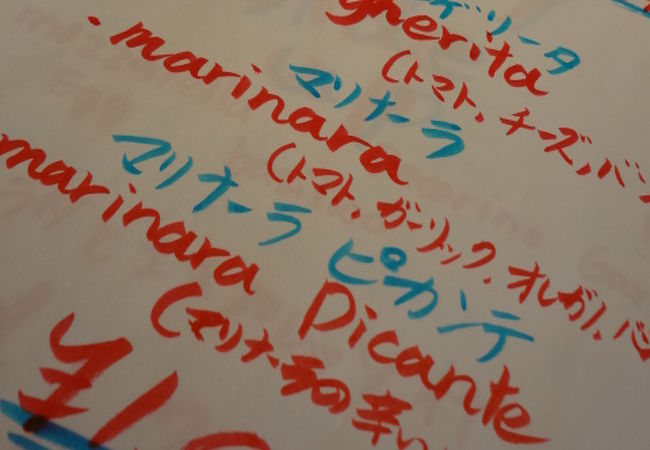 ゲリータ
gherita
(トマト、チーズ、バ
マリナーラ
・marinara
(トマト、ガーリック、オレガノ、バ
マリナーラ ピカンテ
marinara Picante
(マリナーラの辛い
¥1